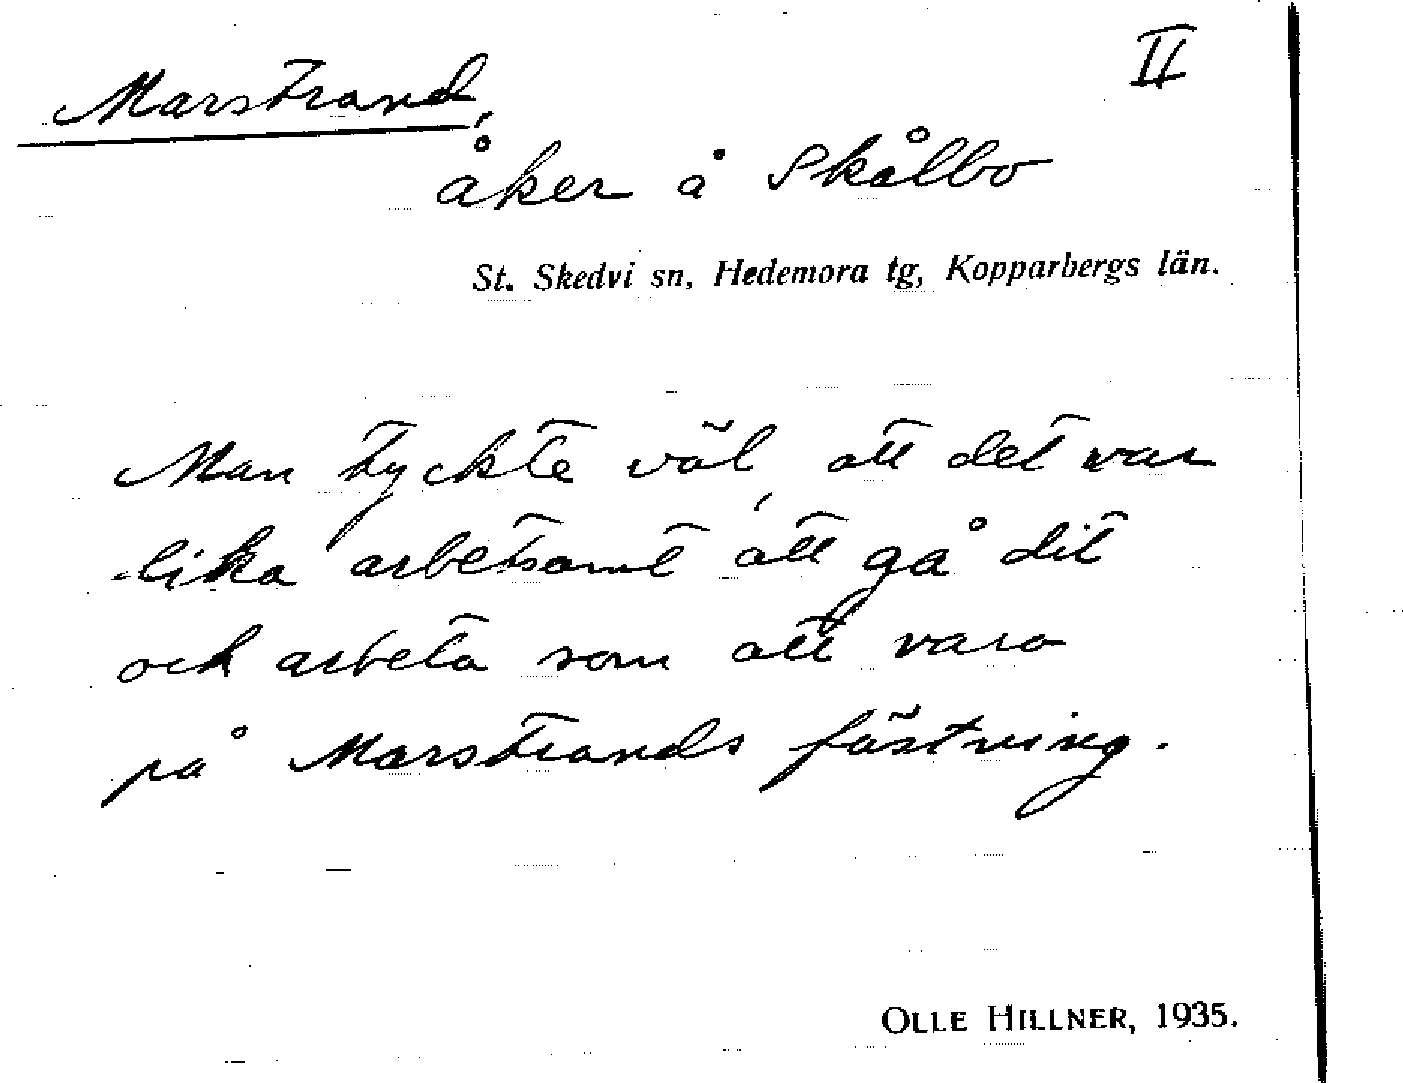 II
Marstrand,
åker å Skålbo
St. Skedvi sn, Hedemora tg, Kopparbergs län.
Man tyckte väl, att det var
lika arbetsamt att gå dit
och arbeta som att vara
på Marstrands fästning.
OLLE HILLNER, 1935.